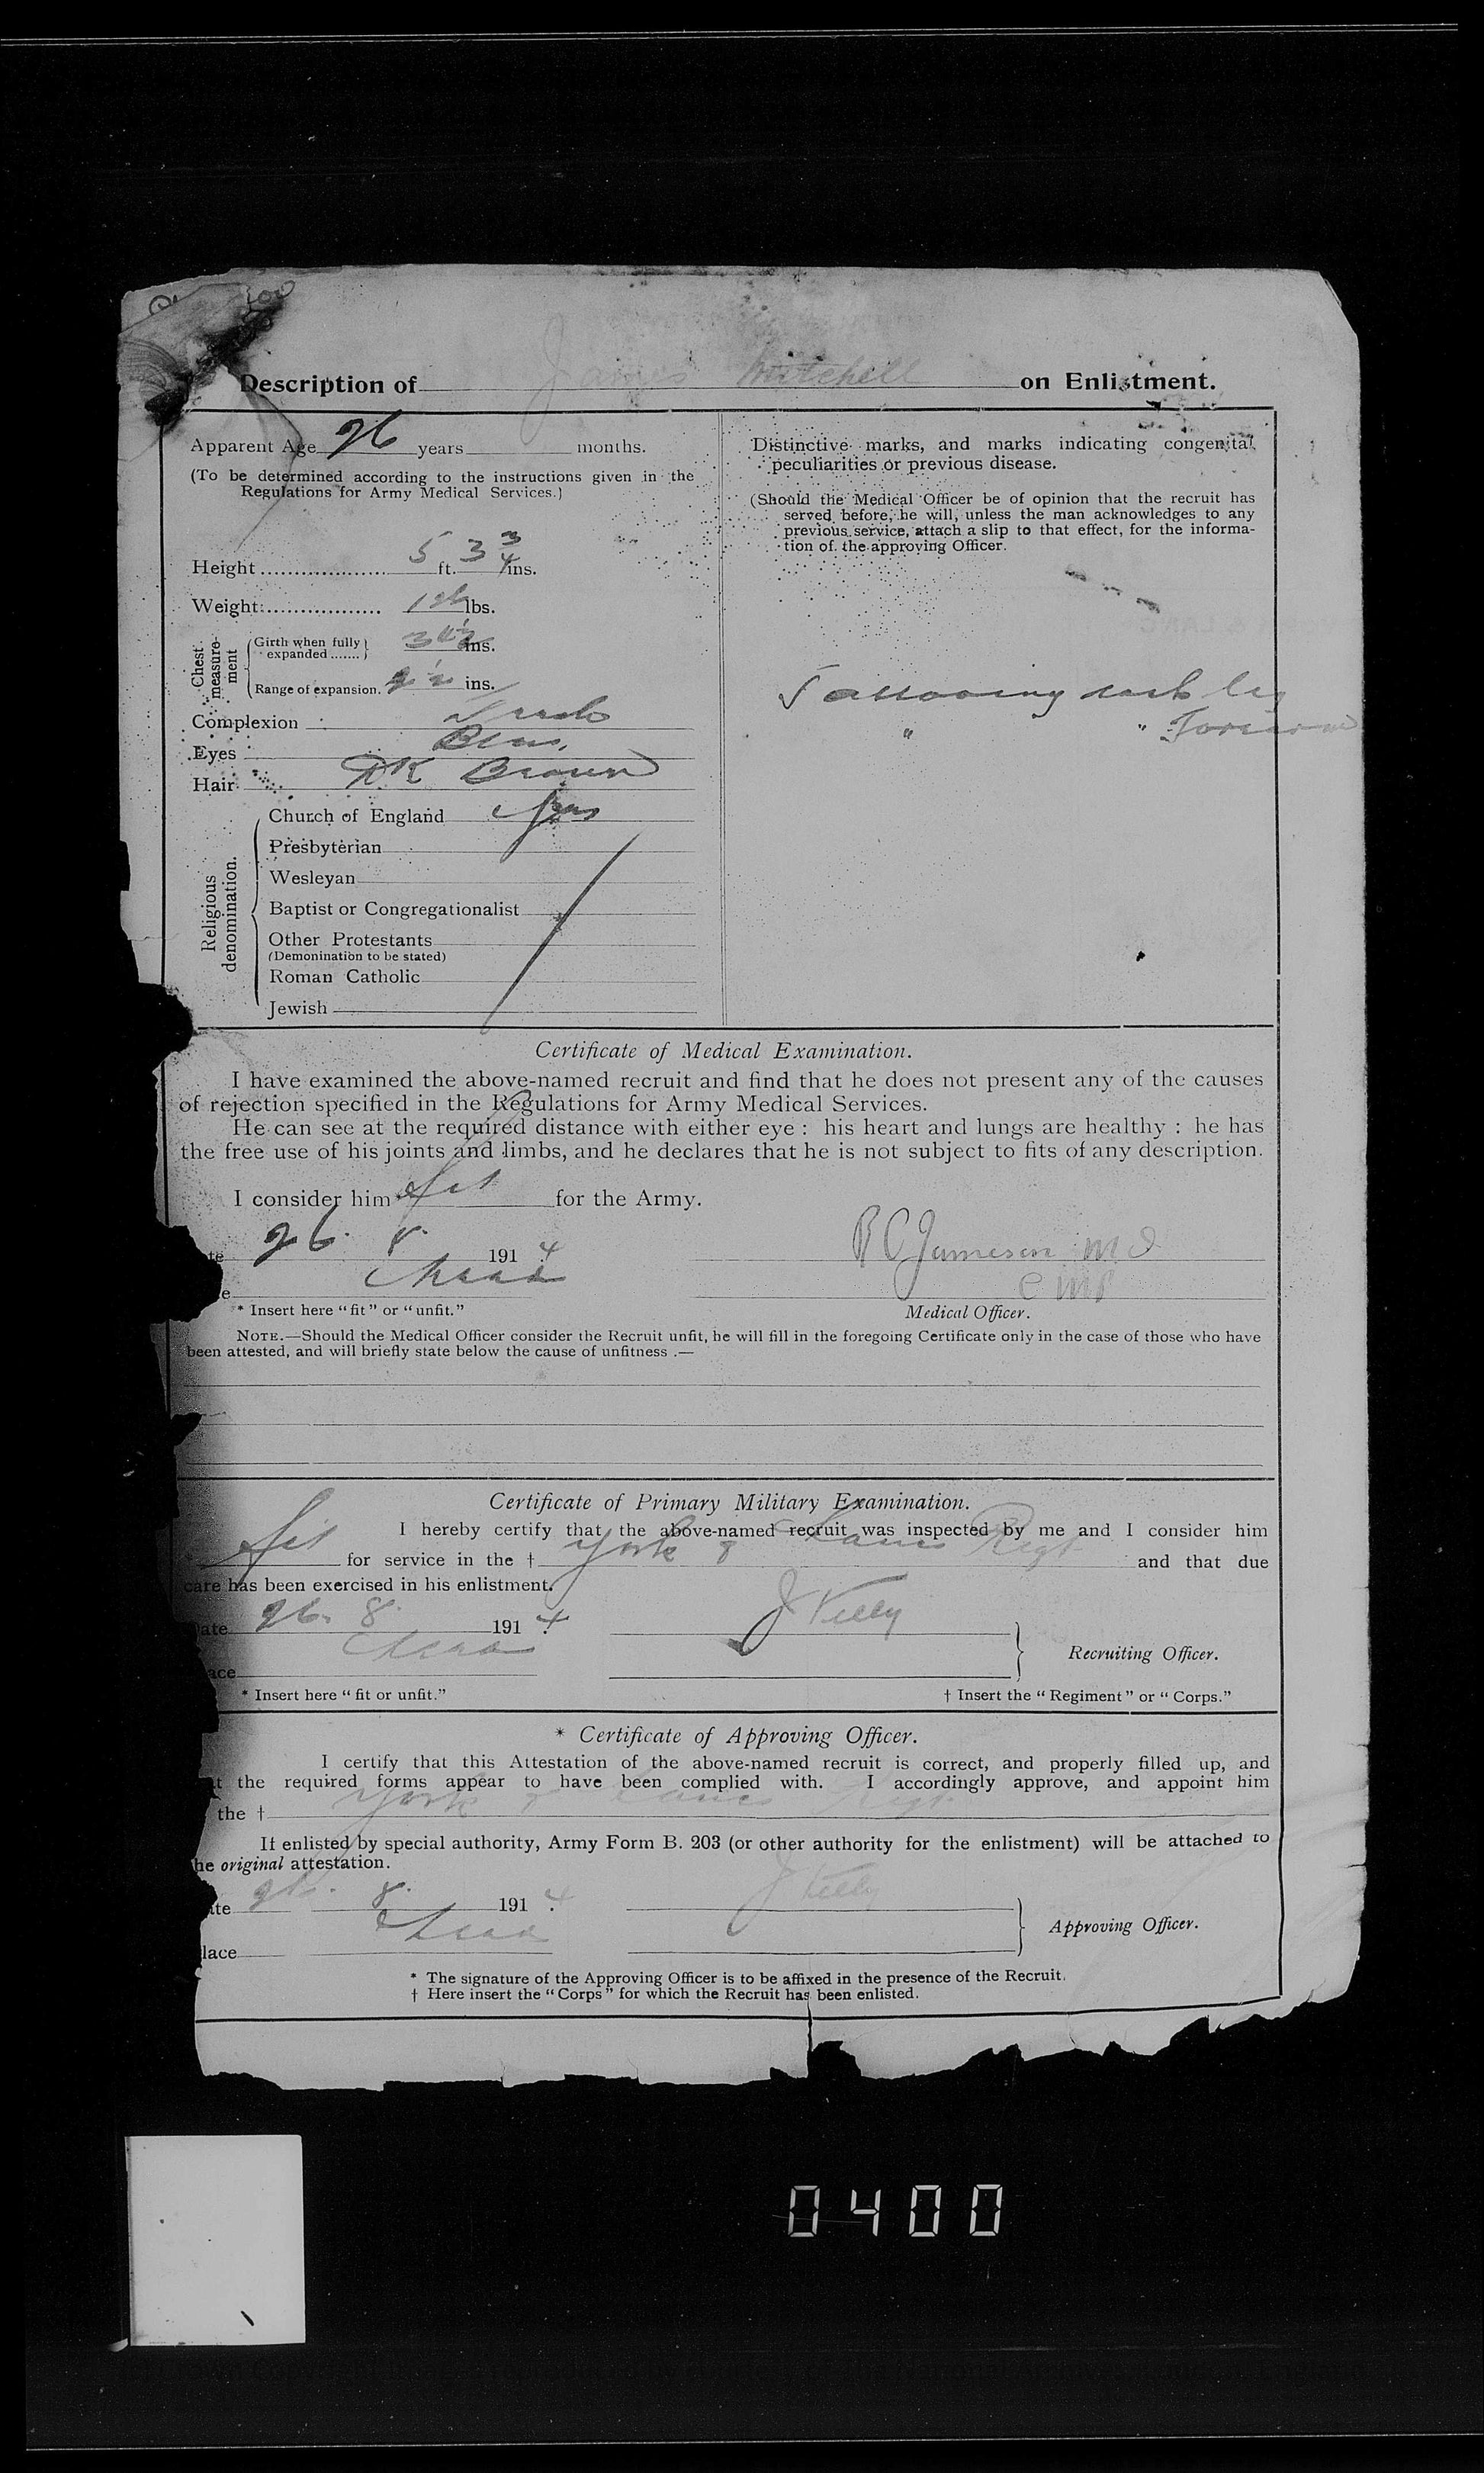 Description of James Mitchell on Enlistment.
Apparent Age 26 years months.
(To be determined according to the instructions given in the
Regulations for Army Medical Services.)
Height 5 ft. 3 3/4 ins.
Weight lbs.
Chest measure-ment
Girth when fully
expanded ins.
Range of expansion. 2 1/2 ins.
Complexion Fresh
Eyes
Hair DK Brown
Religious denomination.
Church of England Yes
Presbyterian
Wesleyan
Baptist or Congregationalist
Other Protestants
(Demonination to be stated)
Roman Catholic
Jewish
Distinctive marks, and marks indicating congenital
peculiarities or previous disease.
(Should the Medical Officer be of opinion that the recruit has
served before, he will, unless the man acknowledges to any
previous service, attach a slip to that effect, for the informa-
tion of the approving Officer.
Tattooing each leg
" " Forearm
Certificate of Medical Examination.
I have examined the above-named recruit and find that he does not present any of the causes
of rejection specified in the Regulations for Army Medical Services.
He can see at the required distance with either eye : his heart and lungs are healthy : he has
the free use of his joints and limbs, and he declares that he is not subject to fits of any description.
I consider him * fit for the Army.
te 26. 8. 1914
R C Jameson M D
e
C M P
* Insert here "fit" or "unfit."
Medical Officer.
NOTE.—Should the Medical Officer consider the Recruit unfit, he will fill in the foregoing Certificate only in the case of those who have
been attested, and will briefly state below the cause of unfitness :—
Certificate of Primary Military Examination.
I hereby certify that the above-named recruit was inspected by me and I consider him
fit for service in the † York & Lancs Regt and that due
care has been exercised in his enlistment.
Date 26. 8. 1914
J Kelly
ace
Recruiting Officer.
* Insert here "fit or unfit."
† Insert the "Regiment" or "Corps."
* Certificate of Approving Officer.
I certify that this Attestation of the above-named recruit is correct, and properly filled up, and
t the required forms appear to have been complied with. I accordingly approve, and appoint him
the † York & Lancs Regt
If enlisted by special authority, Army Form B. 203 (or other authority for the enlistment) will be attached to
he original attestation.
ate 26. 8. 1914
J Kelly
lace
Approving Officer.
* The signature of the Approving Officer is to be affixed in the presence of the Recruit.
† Here insert the "Corps" for which the Recruit has been enlisted.
0400